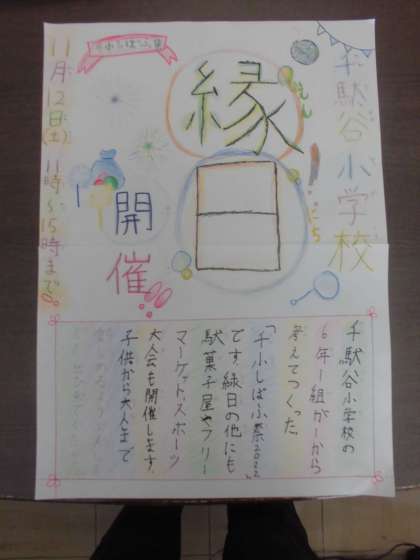 千駄谷小学校
縁日
えん
にち
開催
11月12日(土)11時〜15時まで
千駄谷小学校の
6年1組が一から
考えてつくった
「千小しばふ祭2022」
です。縁日の他にも
駄菓子屋やフリー
マーケット、スポーツ
大会も開催します。
子供から大人まで